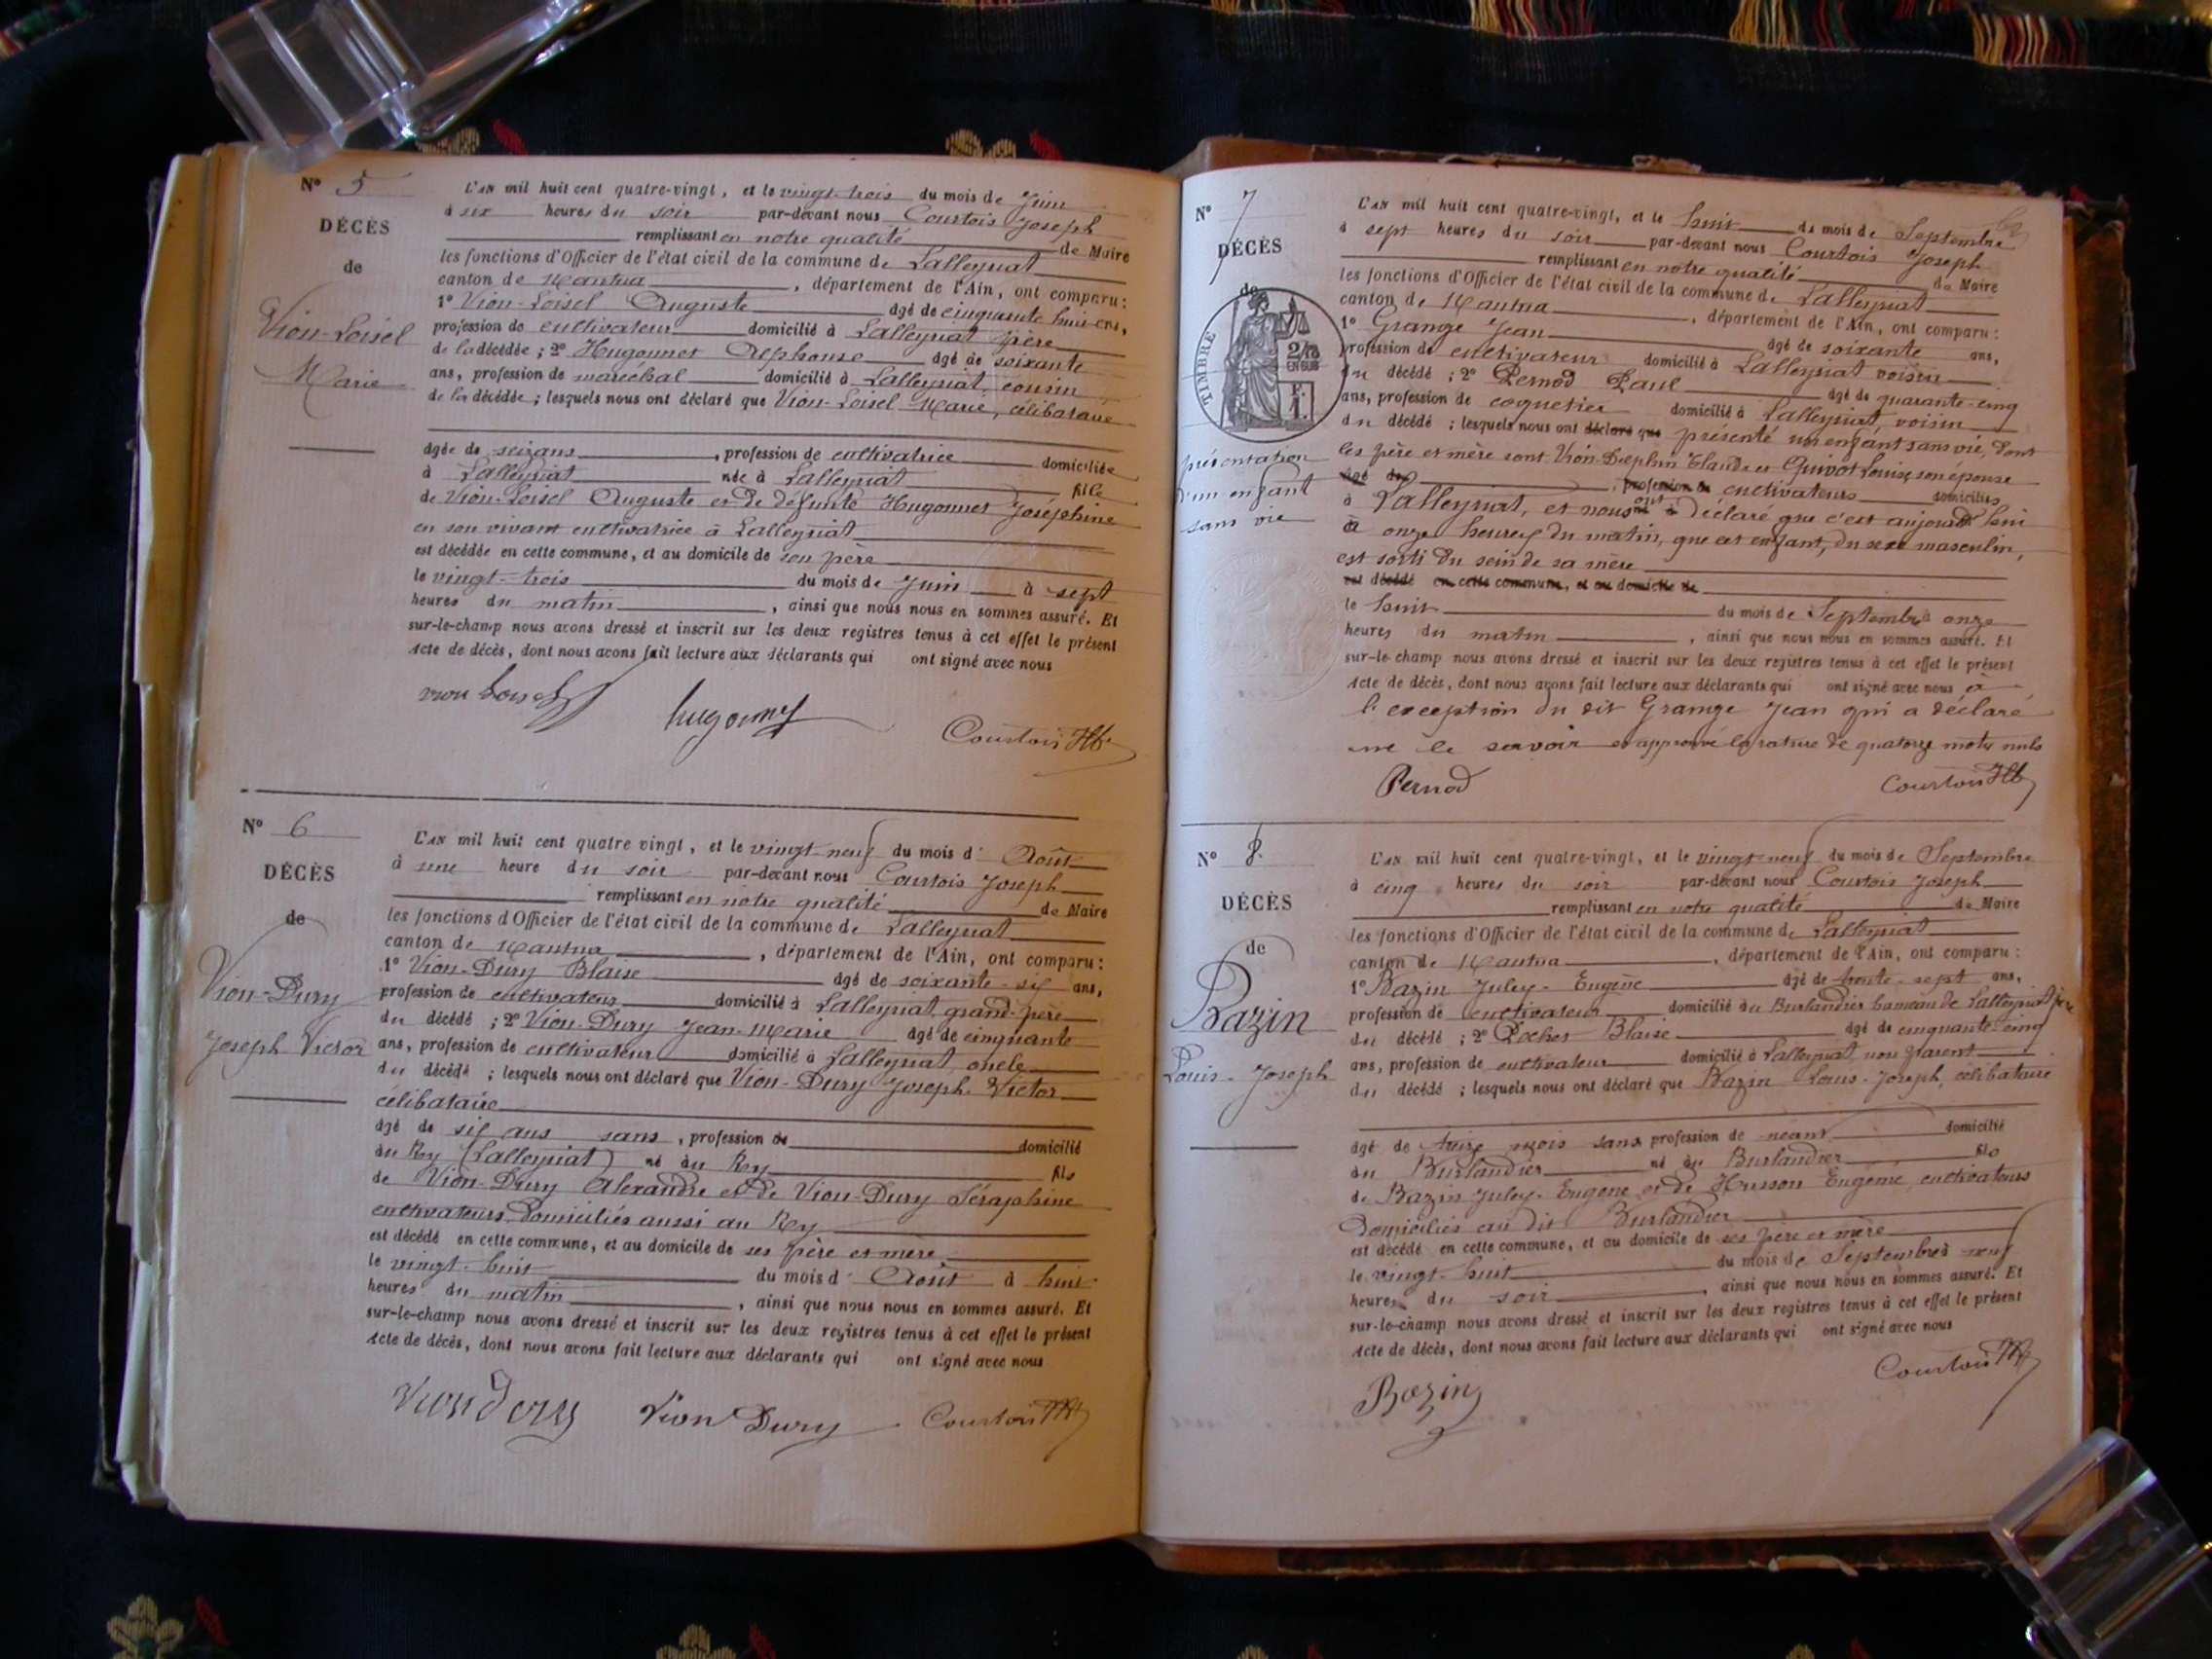 N° 5
DÉCÈS
de
Vion-Loisel
Marie
L'AN mil huit cent quatre-vingt, et le vingt-trois du mois de Juin
à six heures du soir par-devant nous Courtois Joseph
remplissant en notre qualité de Maire
les fonctions d'Officier de l'état civil de la commune de Lalleyriat
canton de Nantua, département de l'Ain, ont comparu :
1° Vion-Loisel Auguste âgé de cinquante huit ans,
profession de cultivateur domicilié à Lalleyriat père
de la décédée ; 2° Hugonnet Alphonse âgé de soixante
ans, profession de maréchal domicilié à Lalleyriat, cousin
de la décédée ; lesquels nous ont déclaré que Vion-Loisel Marie, célibataire
âgée de seize ans, profession de cultivatrice domiciliée
à Lalleyriat née à Lalleyriat fille
de Vion-Loisel Auguste et de défunte Hugonnet Joséphine
en son vivant cultivatrice à Lalleyriat
est décédée en cette commune, et au domicile de son père
le vingt-trois du mois de Juin à sept
heures du matin, ainsi que nous nous en sommes assuré. Et
sur-le-champ nous avons dressé et inscrit sur les deux registres tenus à cet effet le présent
Acte de décès, dont nous avons fait lecture aux déclarants qui ont signé avec nous
vion Loisel
hugonnet
Courtois
N° 6
DÉCÈS
de
Vion-Dury
Joseph Victor
L'AN mil huit cent quatre vingt, et le vingt-neuf du mois d' Août
à une heure du soir par-devant nous Courtois Joseph
remplissant en notre qualité de Maire
les fonctions d'Officier de l'état civil de la commune de Lalleyriat
canton de Nantua, département de l'Ain, ont comparu :
1° Vion-Dury Blaise âgé de soixante-six ans,
profession de cultivateur domicilié à Lalleyriat, grand-père
du décédé ; 2° Vion-Dury Jean-Marie âgé de cinquante
ans, profession de cultivateur domicilié à Lalleyriat, oncle
du décédé ; lesquels nous ont déclaré que Vion-Dury Joseph-Victor
célibataire
âgé de six ans sans, profession de domicilié
au Rey (Lalleyriat) né au Rey fils
de Vion-Dury Alexandre et de Vion-Dury Séraphine
cultivateurs domiciliés aussi au Rey
est décédé en cette commune, et au domicile de ses père et mère
le vingt-huit du mois d' Août à huit
heures du matin, ainsi que nous nous en sommes assuré. Et
sur-le-champ nous avons dressé et inscrit sur les deux registres tenus à cet effet le présent
Acte de décès, dont nous avons fait lecture aux déclarants qui ont signé avec nous
Vion Dury
Courtois
N° 7
DÉCÈS
de
TIMBRE
présentation
d'un enfant
sans vie
L'AN mil huit cent quatre-vingt, et le huit du mois de Septembre
à sept heures du soir par-devant nous Courtois Joseph
remplissant en notre qualité de Maire
les fonctions d'Officier de l'état civil de la commune de Lalleyriat
canton de Nantua, département de l'Ain, ont comparu :
1° Grange Jean âgé de soixante ans,
profession de cultivateur domicilié à Lalleyriat voisin
du décédé ; 2° Pernod Paul âgé de quarante-cinq
ans, profession de coquetier domicilié à Lalleyriat, voisin
du décédé ; lesquels nous ont déclaré que présenté un enfant sans vie, dont
les père et mère sont Vion-Delphin Claude et Guivot Louise son épouse
âgé de, profession de cultivateurs domiciliés
à Lalleyriat, et nous ont déclaré que c'est aujourd'hui
à onze heures du matin, que cet enfant, du sexe masculin,
est sorti du sein de sa mère
est décédé en cette commune, et au domicile de
le huit du mois de Septembre à onze
heures du matin, ainsi que nous nous en sommes assuré. Et
sur-le-champ nous avons dressé et inscrit sur les deux registres tenus à cet effet le présent
Acte de décès, dont nous avons fait lecture aux déclarants qui ont signé avec nous à
l'exception du dit Grange Jean qui a déclaré
ne le savoir et approuvé la rature de quatorze mots nuls
Pernod
Courtois
N° 8.
DÉCÈS
de
Bazin
Louis-Joseph
L'AN mil huit cent quatre-vingt, et le vingt-neuf du mois de Septembre
à cinq heures du soir par-devant nous Courtois Joseph
remplissant en notre qualité de Maire
les fonctions d'Officier de l'état civil de la commune de Lalleyriat
canton de Nantua, département de l'Ain, ont comparu :
1° Bazin Jules-Eugène âgé de trente-sept ans,
profession de cultivateur domicilié au Burlandier hameau de Lalleyriat père
du décédé ; 2° Blaise âgé de cinquante-cinq
ans, profession de cultivateur domicilié à Lalleyriat non parent
du décédé ; lesquels nous ont déclaré que Bazin Louis-Joseph, célibataire
âgé de treize mois sans profession de néant domicilié
au Burlandier né au Burlandier fils
de Bazin Jules-Eugène et de Husson Eugénie, cultivateurs
domiciliés au dit Burlandier
est décédé en cette commune, et au domicile de ses père et mère
le vingt-huit du mois de Septembre à neuf
heures du soir, ainsi que nous nous en sommes assuré. Et
sur-le-champ nous avons dressé et inscrit sur les deux registres tenus à cet effet le présent
Acte de décès, dont nous avons fait lecture aux déclarants qui ont signé avec nous
Bazin
Courtois